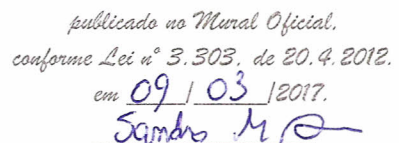 publicado no Mural Oficial.
conforme Lei nº 3.303. de 20.4.2012.
em 09 / 03 /2017.
Sandro M